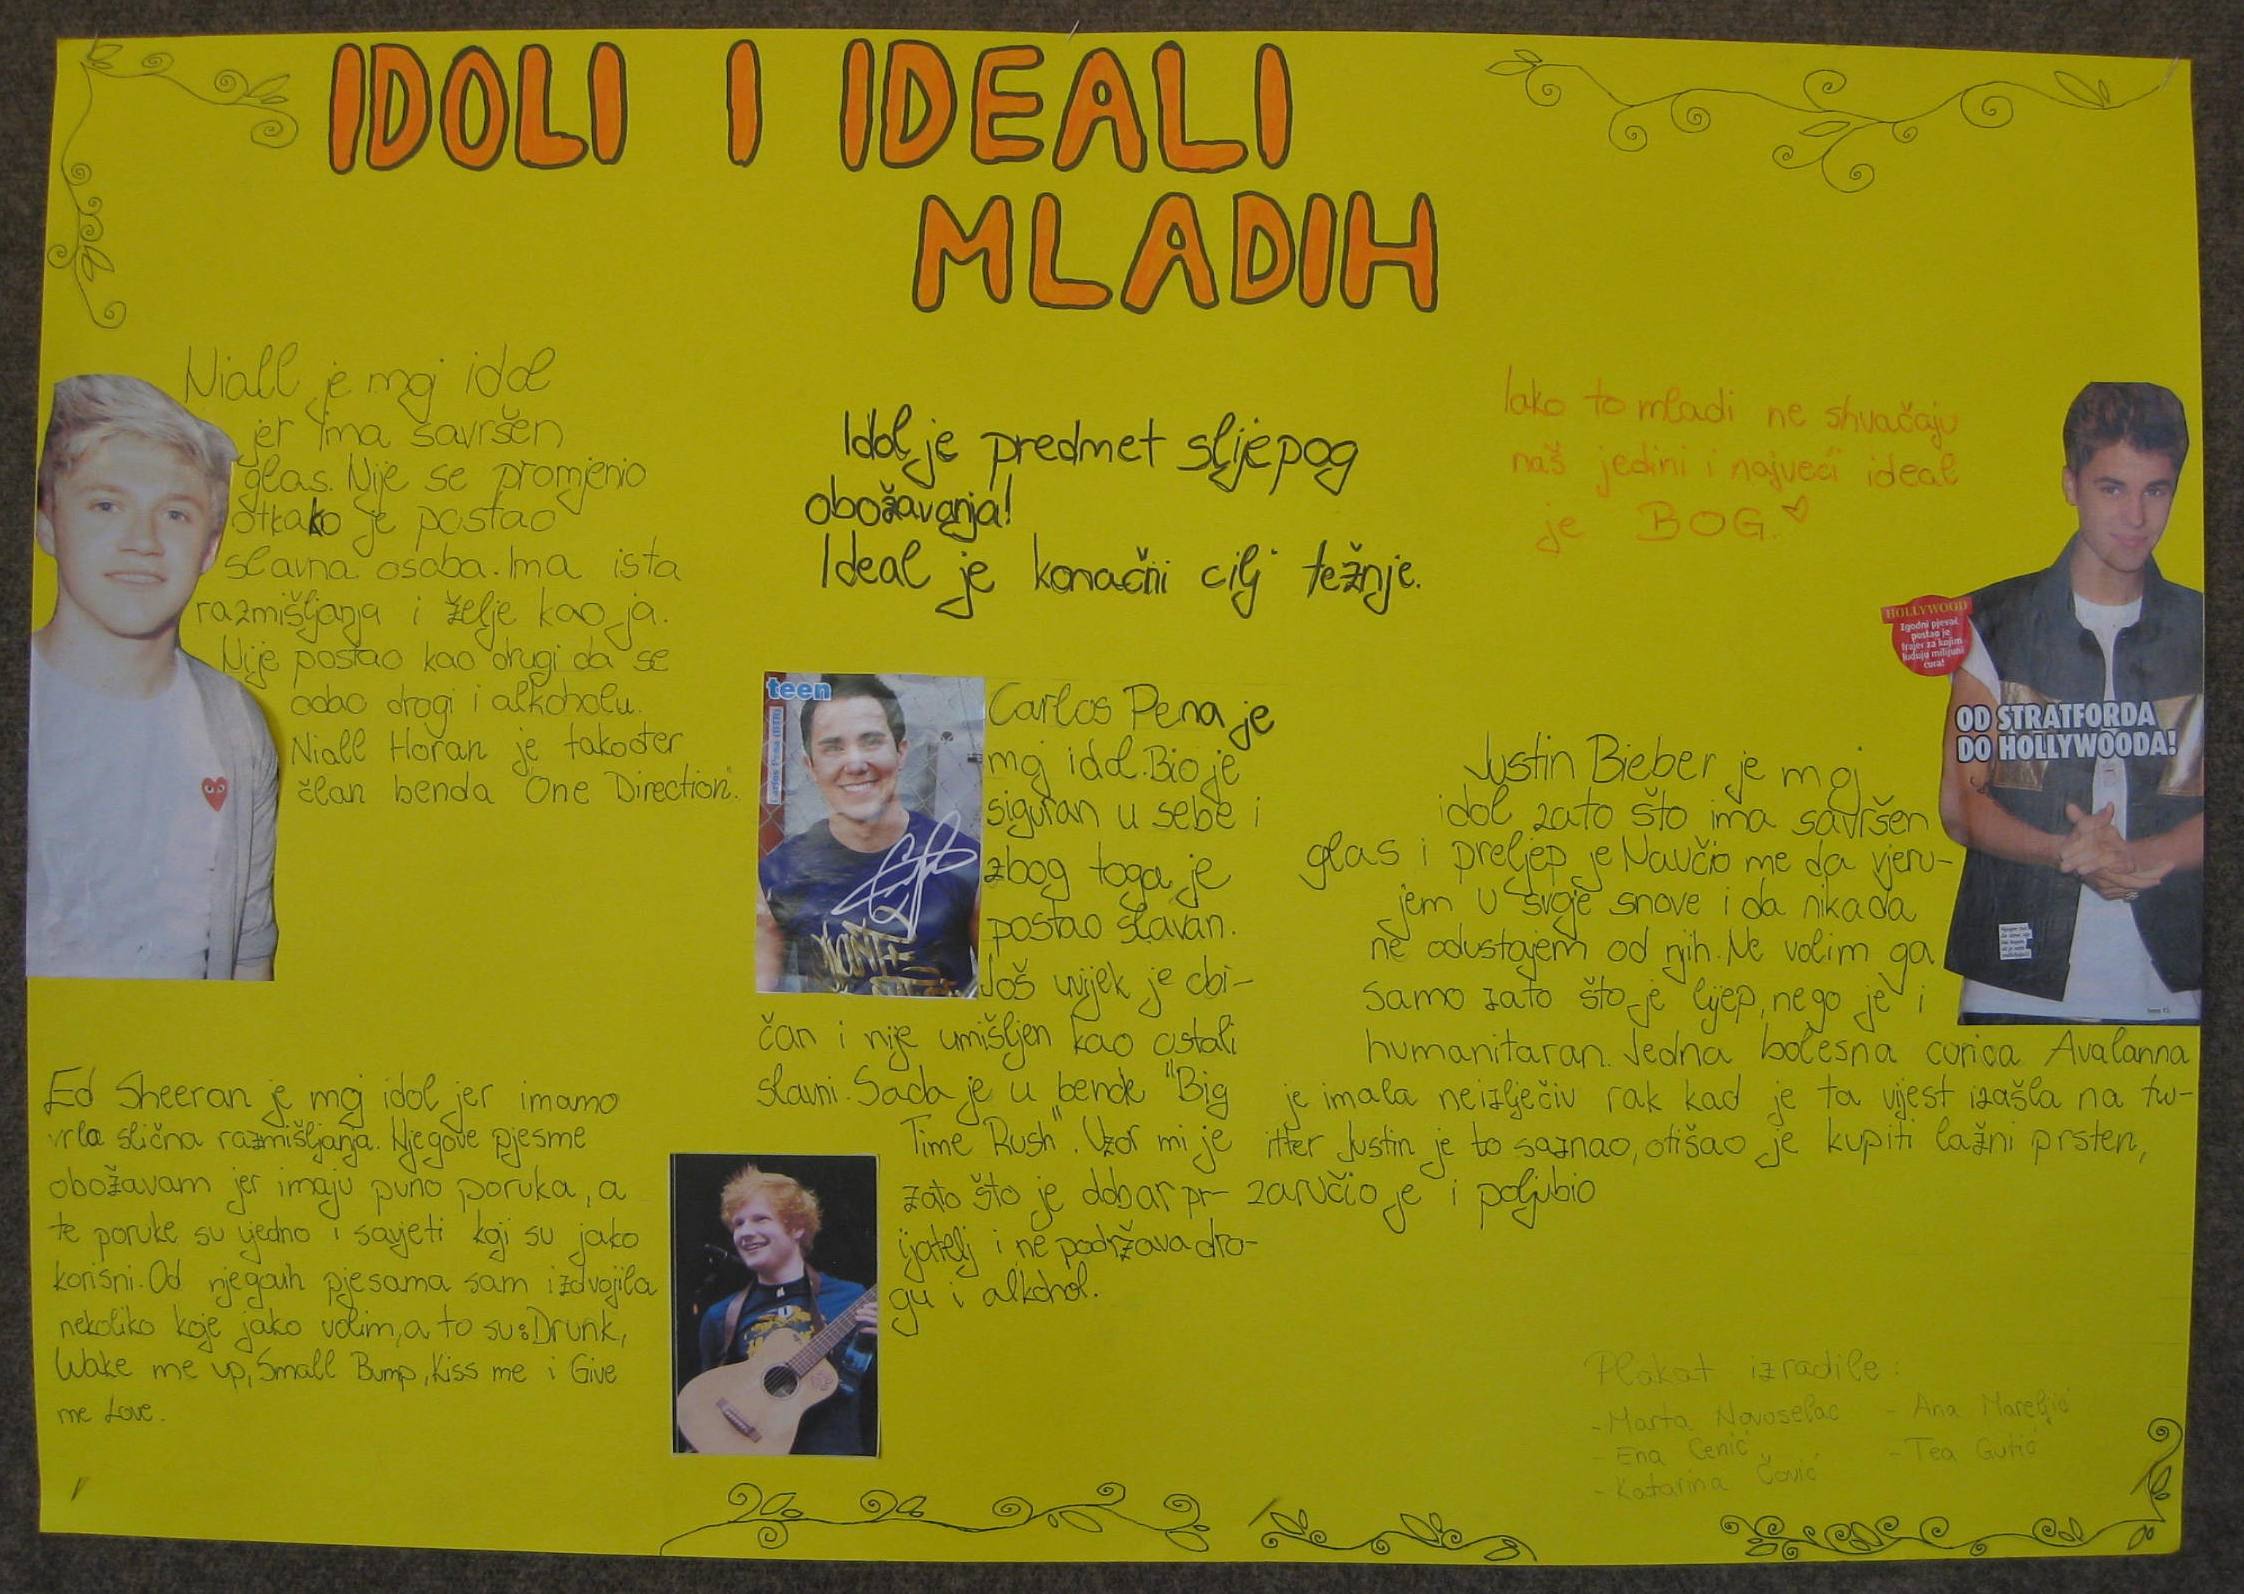 IDOLI I IDEALI
MLADIH
Niall je moj idol
jer ima savršen
glas. Nije se promjenio
otkako je postao
slavna osoba. Ima ista
razmišljanja i želje kao ja.
Nije postao kao drugi da se
odao drogi i alkoholu.
Niall Horan je također
član benda "One Direction".
Idol je predmet slijepog
obožavanja!
Ideal je konačni cilj težnje.
Iako to mladi ne shvačaju
naš jedini i najveći ideal
je BOG.
HOLLYWOOD
Zgodni pjevač
postao je
frajer za kojim
luduju milijuni
cura!
OD STRATFORDA
DO HOLLYWOODA!
teen
Carlos Pena (BTR)
Carlos Pena je
moj idol. Bio je
siguran u sebe i
zbog toga je
postao slavan.
Još uvijek je obi-
čan i nije umišljen kao ostali
slavni. Sada je u bendu "Big
Time Rush". Uzor mi je
zato što je dobar pr-
ijatelj i ne podržava dro-
gu i alkohol.
Justin Bieber je moj
idol zato što ima savršen
glas i preljep je Naučio me da vjeru-
jem u svoje snove i da nikada
ne odustajem od njih. Ne volim ga
samo zato što je lijep, nego je i
humanitaran. Jedna bolesna curica Avalanna
je imala neizlječiv rak kad je ta vijest izašla na tw-
itter Justin je to saznao, otišao je kupiti lažni prsten,
zaručio je i poljubio
Ed Sheeran je moj idol jer imamo
vrlo slična razmišljanja. Njegove pjesme
obožavam jer imaju puno poruka, a
te poruke su ujedno i savjeti koji su jako
korisni. Od njegovih pjesama sam izdvojila
nekoliko koje jako volim, a to su: Drunk,
Wake me up, Small Bump, Kiss me i Give
me Love.
Plakat izradile:
- Marta Novoselac - Ana Mareljić
- Ena Cenić - Tea Gutić
- Katarina Čović